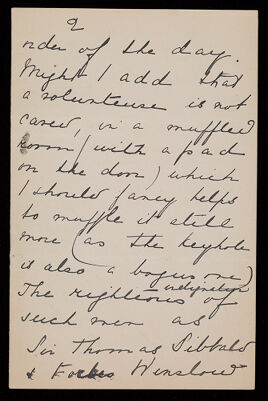 2
order of the day.
Might I add that
a volunteuse is not
cared, in a muffled
room (with a pad
on the door) which
I should fancy helps
to muffle it still
more (as the keyhole
is also a bogus one)
The righteous indignation of
such men as
Sir Thomas Sibbald
& Forbes Winslow